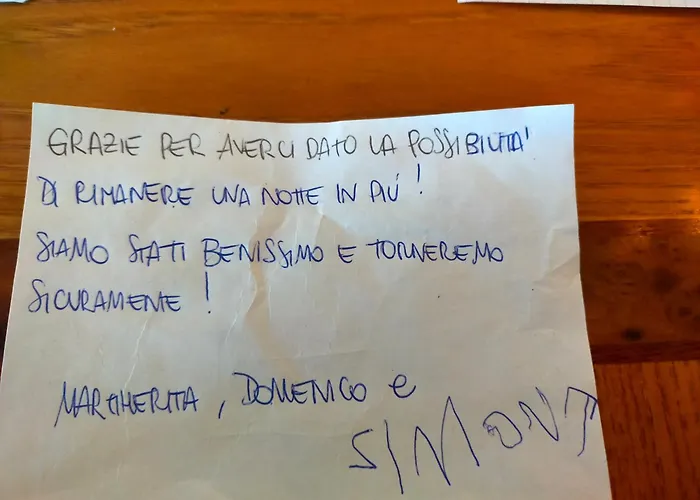 GRAZIE PER AVERCI DATO LA POSSIBILITA'
DI RIMANERE UNA NOTTE IN PIÚ!
SIAMO STATI BENISSIMO E TORNEREMO
SICURAMENTE!
MARGHERITA, DOMENICO e
SIMONE